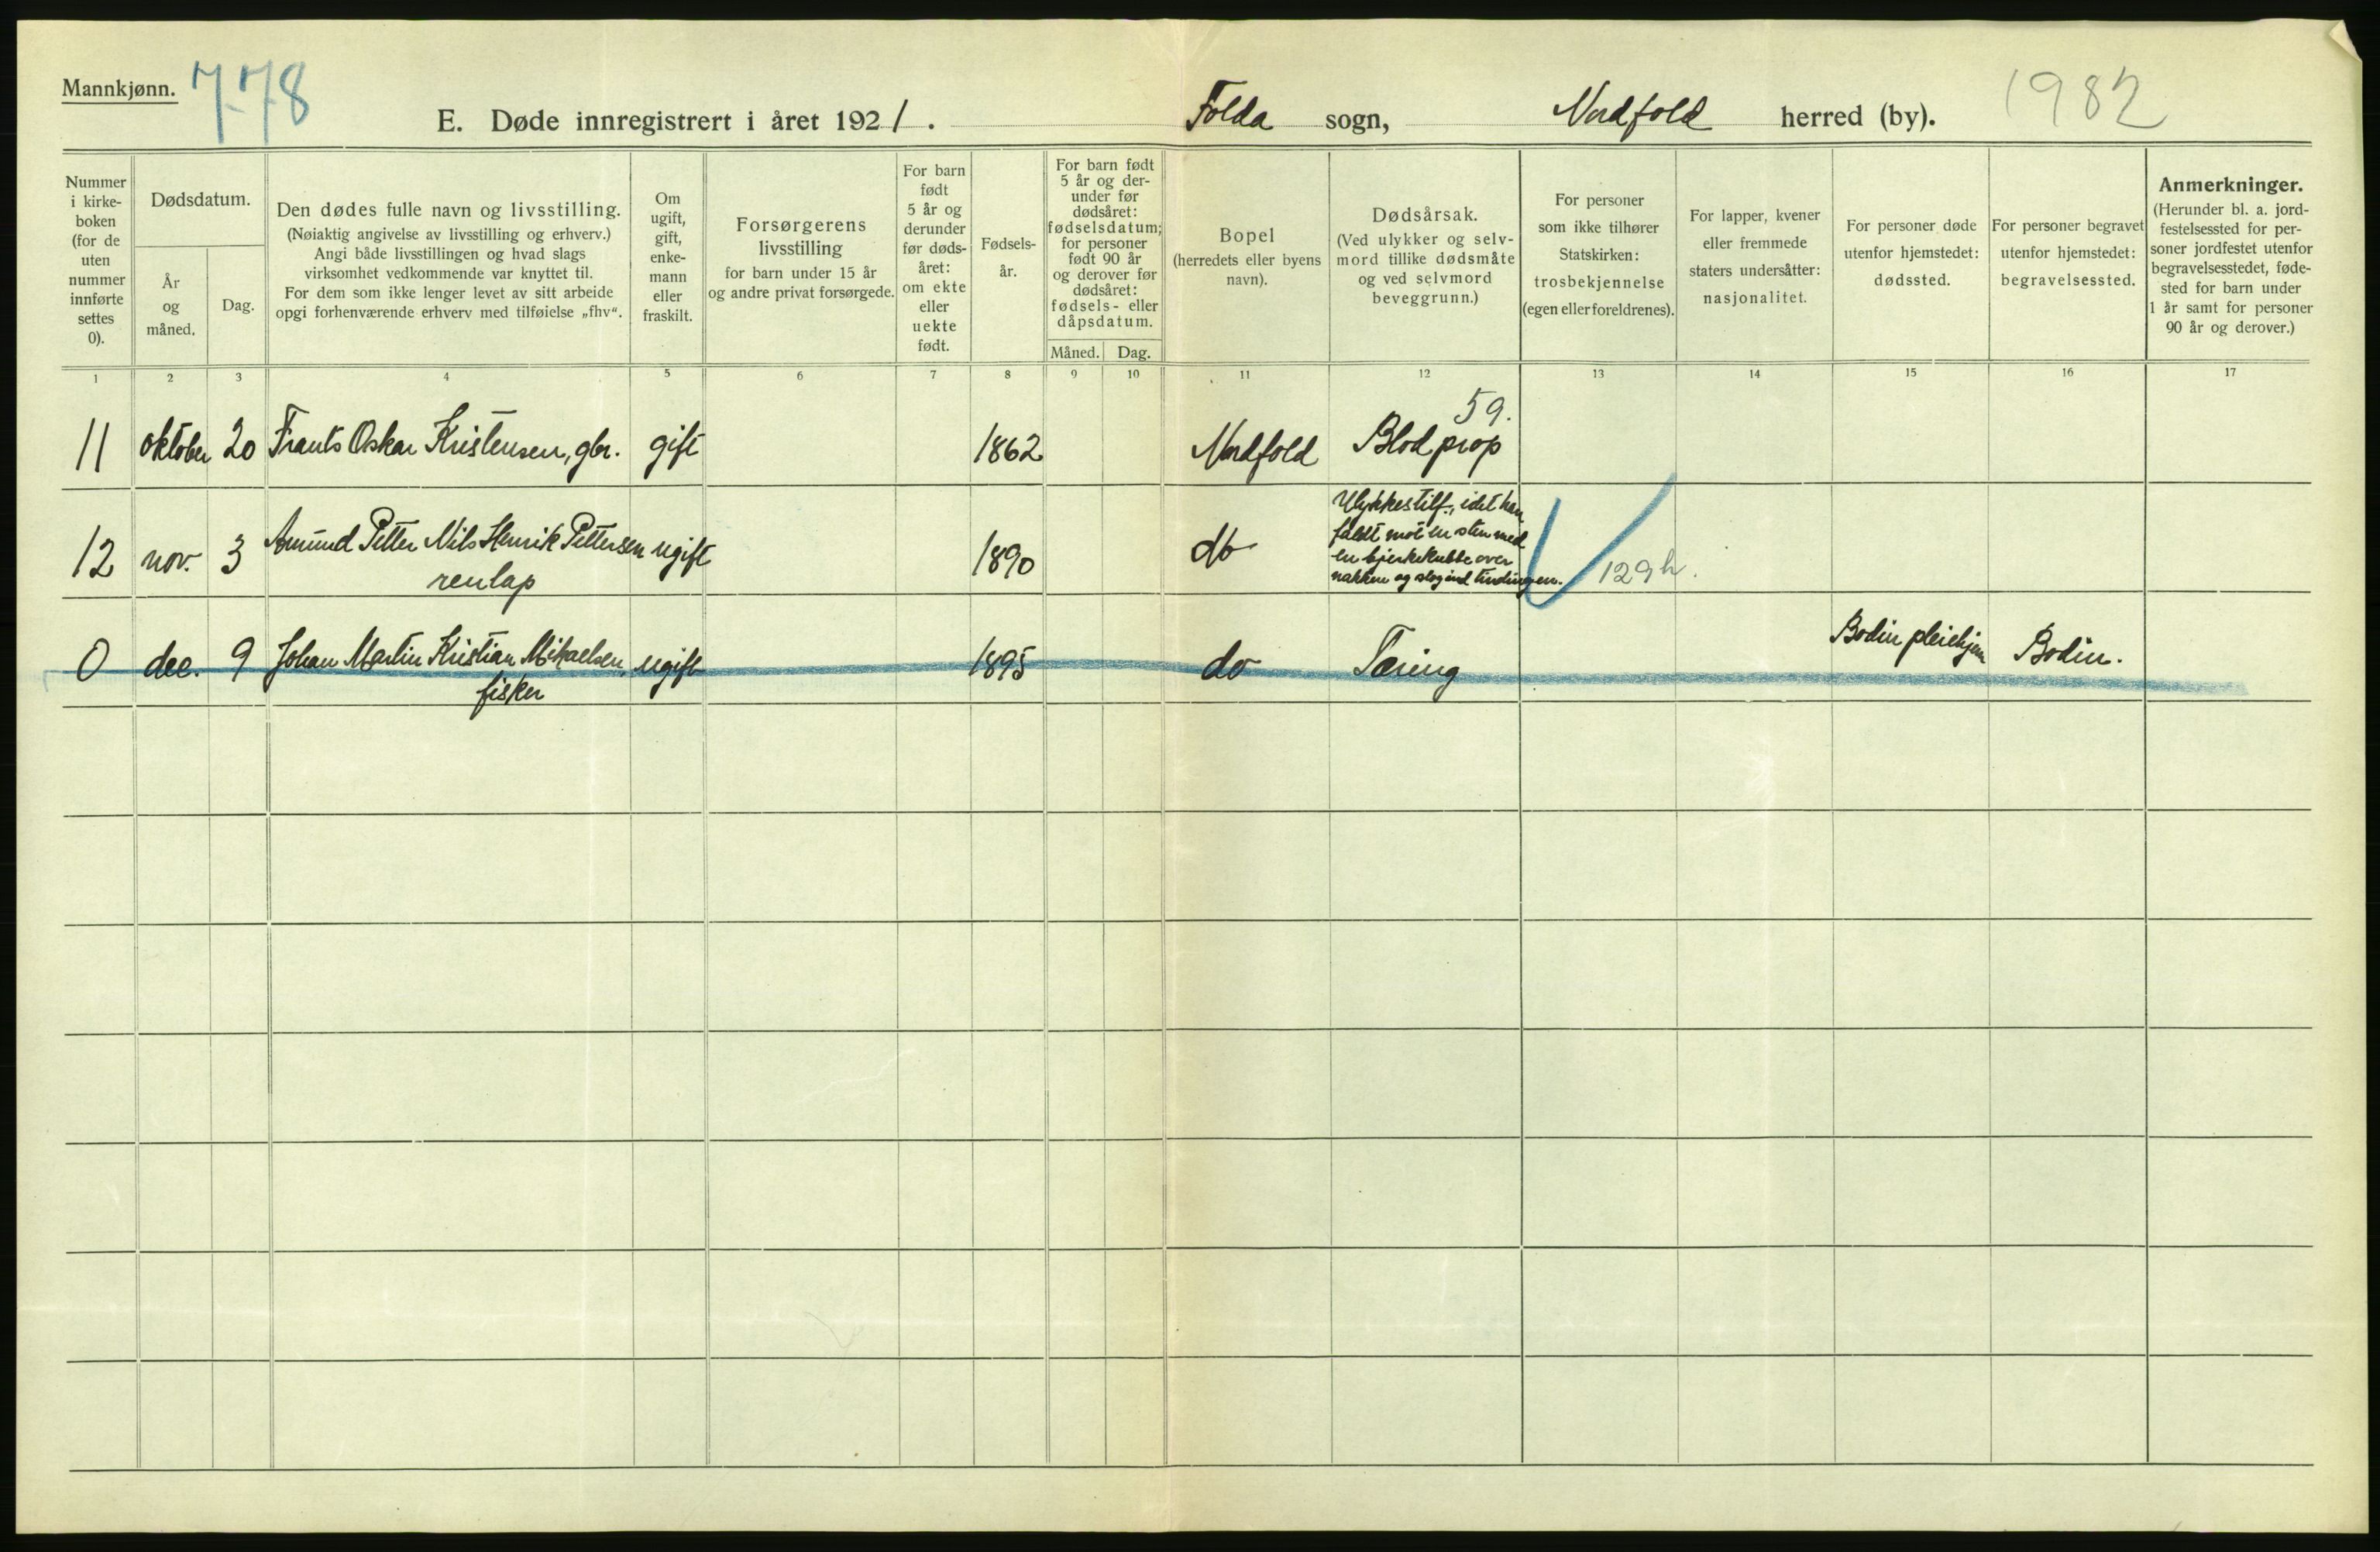 Mannkjønn.
7-78
E. Døde innregistrert i året 1921.
Folda sogn,
Nordfold herred (by).
1982
Nummer
i kirke-
boken
(for de
uten
nummer
innførte
settes
0).
Dødsdatum.
År
og
måned.
Dag.
Den dødes fulle navn og livsstilling.
(Nøiaktig angivelse av livsstilling og erhverv.)
Angi både livsstillingen og hvad slags
virksomhet vedkommende var knyttet til.
For dem som ikke lenger levet av sitt arbeide
opgi forhenværende erhverv med tilføielse „fhv“.
Om
ugift,
gift,
enke-
mann
eller
fraskilt.
Forsørgerens
livsstilling
for barn under 15 år
og andre privat forsørgede.
For barn
født
5 år og
derunder
før døds-
året:
om ekte
eller
uekte
født.
Fødsels-
år.
For barn født
5 år og der-
under før
dødsåret:
fødselsdatum;
for personer
født 90 år
og derover før
dødsåret:
fødsels- eller
dåpsdatum.
Måned. Dag.
Bopel
(herredets eller byens
navn).
Dødsårsak.
(Ved ulykker og selv-
mord tillike dødsmåte
og ved selvmord
beveggrunn.)
For personer
som ikke tilhører
Statskirken:
trosbekjennelse
(egen eller foreldrenes).
For lapper, kvener
eller fremmede
staters undersåtter:
nasjonalitet.
For personer døde
utenfor hjemstedet:
dødssted.
For personer begravet
utenfor hjemstedet:
begravelsessted.
Anmerkninger.
(Herunder bl. a. jord-
festelsessted for per-
soner jordfestet utenfor
begravelsesstedet, føde-
sted for barn under
1 år samt for personer
90 år og derover.)
1 2 3 4 5 6 7 8 9 10 11 12 13 14 15 16 17
59.
11 oktober 20 Frants Oskar Kristensen, gbr. gift 1862 Nordfold Blodprop
12 nov. 3 Amund Petter Nils Henrik Pettersen ugift 1890 do
renlap
Ulykkestilf., idet han
faldt mot en sten med
en bjerkekubbe over
nakken og slog ind tindingen.
129h.
0 dec. 9 Johan Martin Kristian Mikaelsen, ugift 1895 do Tæring Bodin pleiehjem Bodin.
fisker